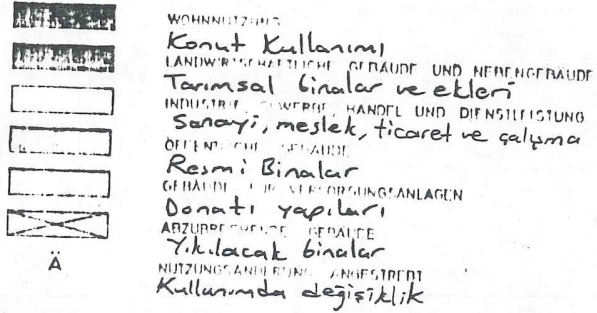 WOHNNUTZUNG
Konut Kullanımı
LANDWIRTSCHAFTLICHE GEBÄUDE UND NEBENGEBÄUDE
Tarımsal binalar ve ekleri
INDUSTRIE, GEWERBE, HANDEL UND DIENSTLEISTUNG
Sanayi, meslek, ticaret ve çalışma
ÖFFENTLICHE GEBÄUDE
Resmi Binalar
GEBÄUDE FÜR VERSORGUNGSANLAGEN
Donatı yapıları
ABZUBRECHENDE GEBÄUDE
Yıkılacak binalar
Ä
NUTZUNGSÄNDERUNG ANGESTREBT
Kullanımda değişiklik